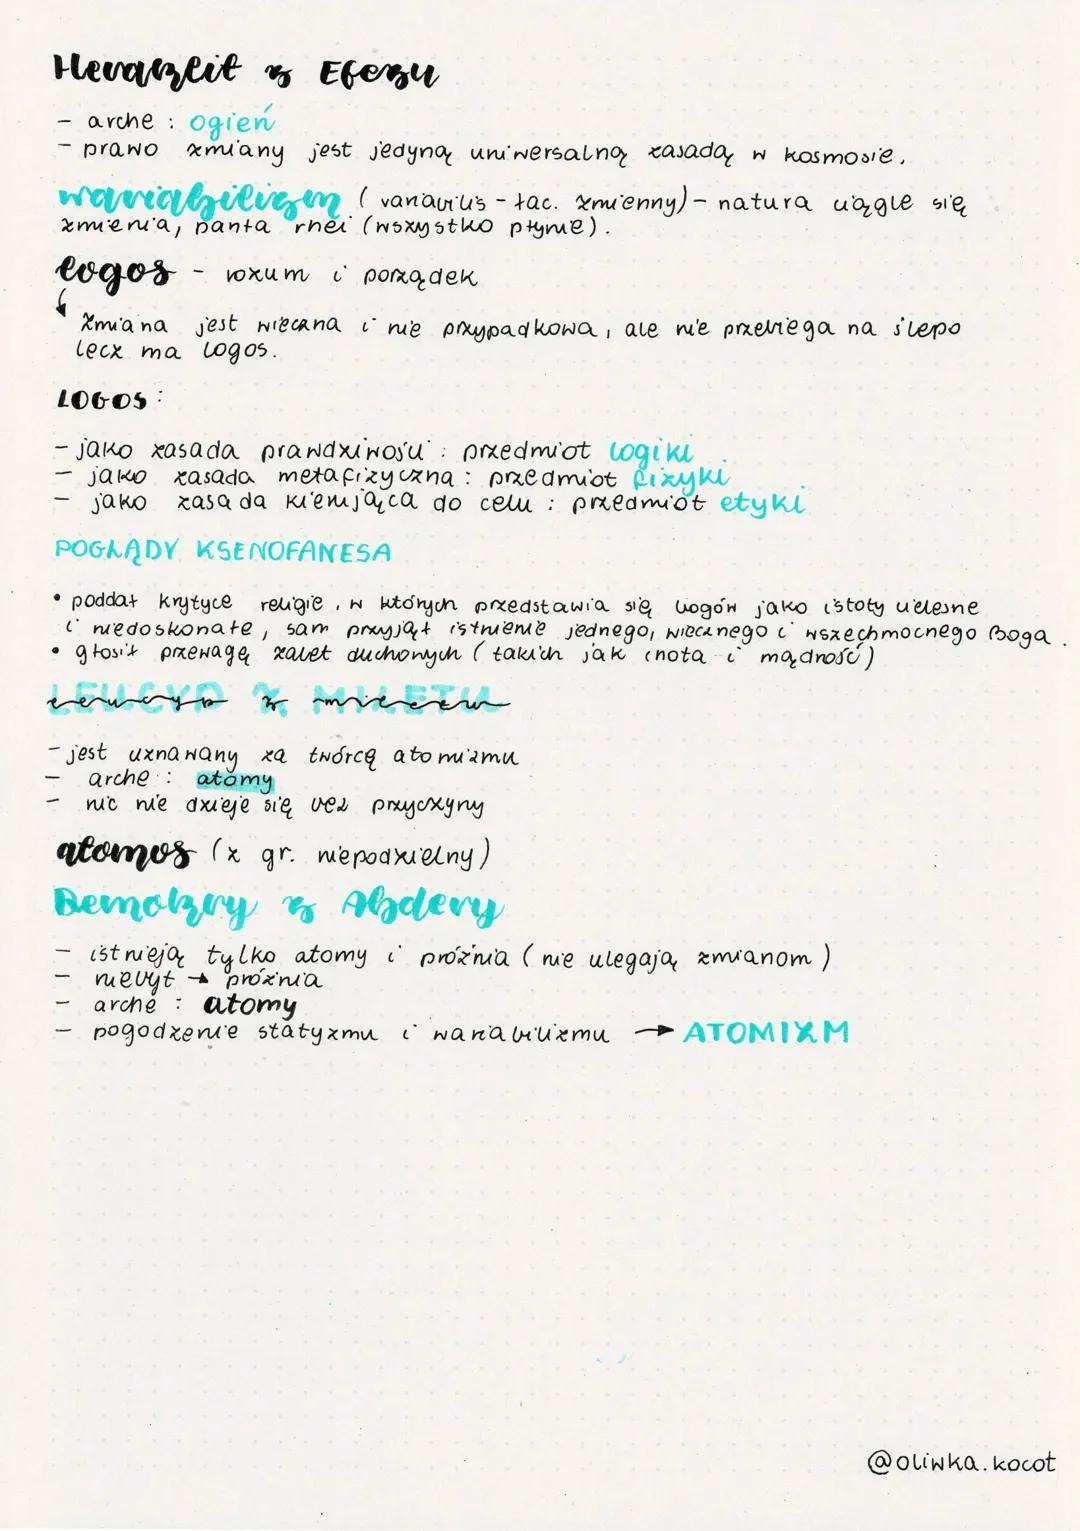 Heraklit z Efezu
- arche : ogień
- prawo zmiany jest jedyną uniwersalną zasadą w kosmosie.
wariabilizm ( variabilis - łac. zmienny) - natura ciągle się
zmienia, panta rhei (wszystko płynie).
logos - rozum i porządek
Zmiana jest wieczna i nie przypadkowa, ale nie przebiega na ślepo
lecz ma logos.
LOGOS:
- jako zasada prawdziwości : przedmiot logiki
- jako zasada metafizyczna : przedmiot fizyki
- jako zasada kierująca do celu : przedmiot etyki
POGLĄDY KSENOFANESA
• poddał krytyce religie, w których przedstawia się bogów jako istoty cielesne
i niedoskonałe, sam przyjął istnienie jednego, wiecznego i wszechmocnego Boga.
• głosił przewagę zalet duchowych ( takich jak cnota i mądrość)
LEUCYP Z MILETU
- jest uznawany za twórcę atomizmu
- arche : atomy
- nic nie dzieje się bez przyczyny
atomos (z gr. niepodzielny)
Demokryt z Abdery
- istnieją tylko atomy i próżnia ( nie ulegają zmianom )
- niebyt → próżnia
- arche : atomy
- pogodzenie statyzmu i wariabilizmu → ATOMIZM
@oliwka.kocot